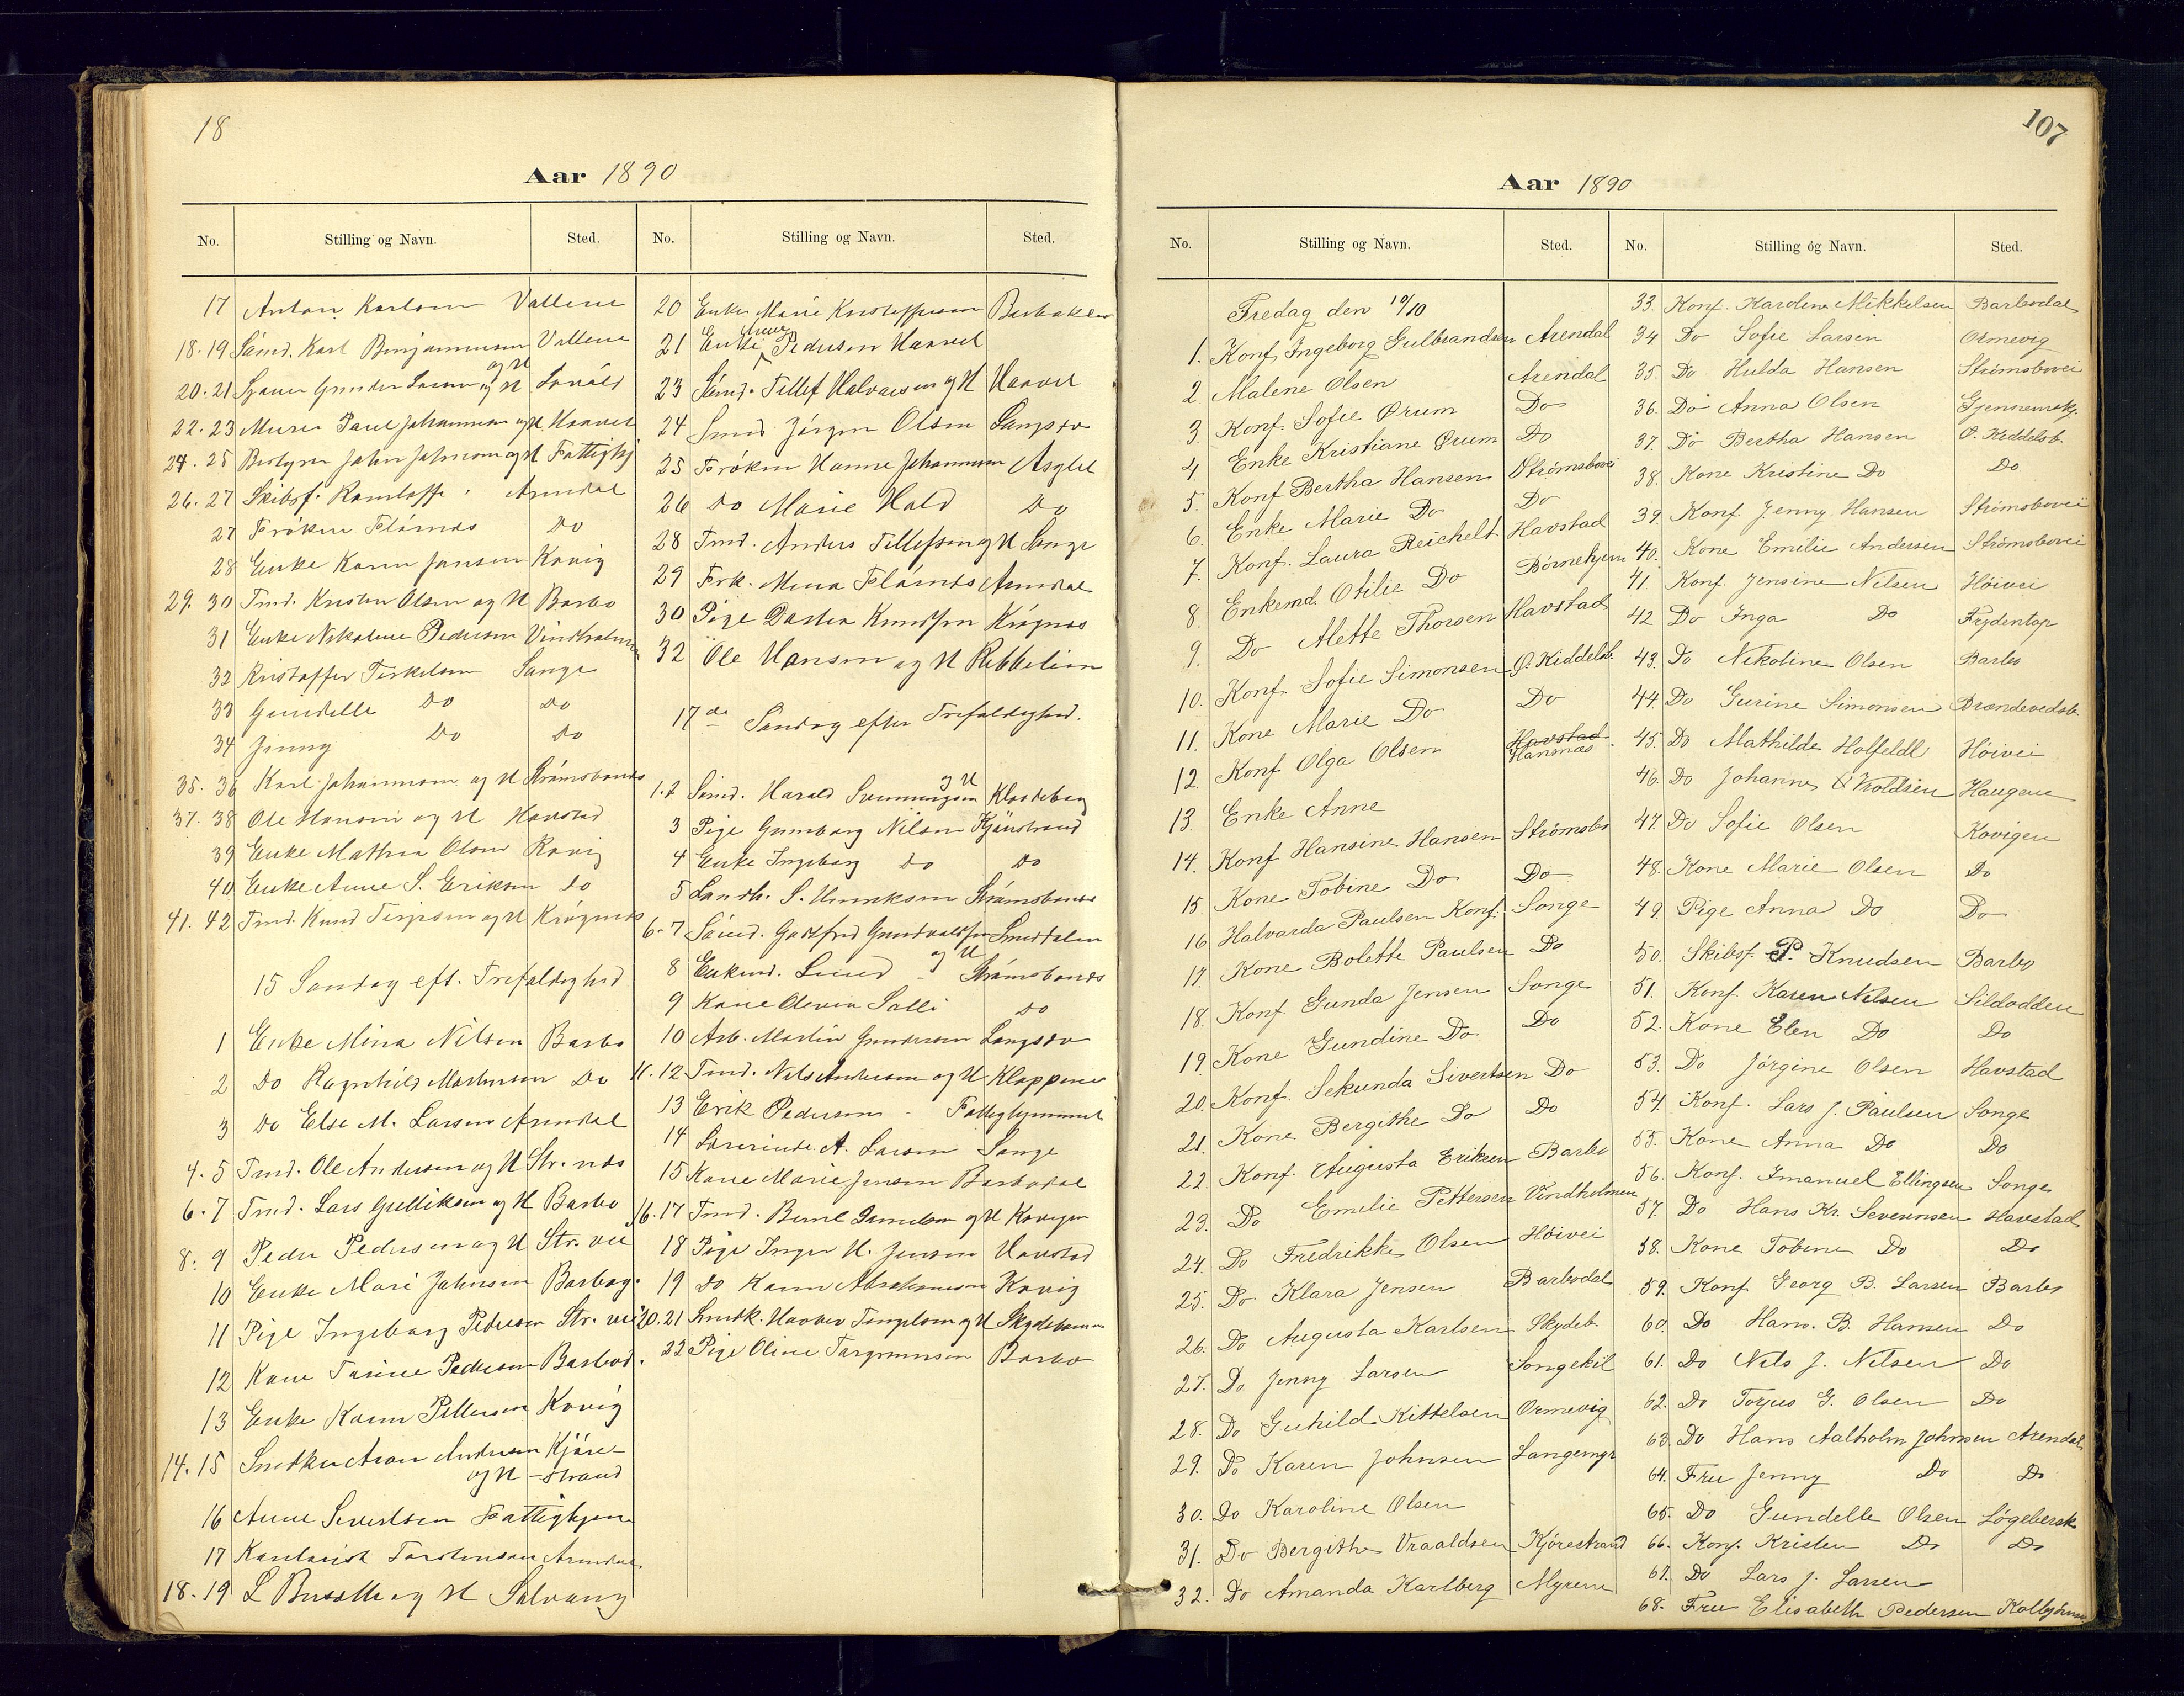 18
Aar 1890
No. Stilling og Navn. Sted.
17 Anton Karlsen Vallene
18.19 Sømd. Karl Benjaminsen og H Vallene
20.21 Gunder Larsen og H
22.23 Murer Paul Johannesen og H Haavet
24.25 Bestyrer John Johnsen og H Fattighj
26.27 Skibsf. Arendal
27 Frøken Flørnes Do
28 Enke Karen Jansen Kovig
29.30 Tmd. Kristen Olsen og H Barbo
31 Enke Nikoline Pedersen Vindholmen
32 Kristoffer Terkelsen Songe
33 Gundelle Do Do
34 Jenny Do Do
35.36 Karl Johannesen og H Strømsbonæs
37.38 Ole Hansen og H Havstad
39 Enke Mathea Olsen Kovig
40 Enke Anne S. Eriksen Do
41.42 Tmd. Knud Terjesen og H Krøgenes
15 Søndag eft. Trefoldighed
1 Enke Mina Nilsen Barbo
2 Do Ragnhild Mortensen Do
3 Do Else M. Larsen Arendal
4.5 Tmd. Ole Andersen og H Str.nes
6.7 Tmd. Lars Gulliksen og H Barbo
8.9 Peder Pedersen og H Str.vei
10 Enke Mari Johnsen Barbog.
11 Pige Ingeborg Pedersen Str.vei
12 Kone Tarine Pedersen Barbod.
13 Enke Karen Pettersen Kovig
14.15 Snedker Aron Andersen Kjøre-
og H -strand
16 Anne Severtsen Fattighjem
17 Torstensen Arendal
18.19 L og H Solvang
No. Stilling og Navn. Sted.
20 Enke Marie Kristoffersen Barbakken
21 Enke Anne Pedersen Haavet
23 Sømd. Tellef Halvorsen og H Haavet
24 Smed Jørgen Olsen Langsæ
25 Frøken Hanne Johannesen Asylet
26 Do Marie Hald Do
28 Tmd. Anders Tellefsen og H Songe
29 Frk. Mina Flørnes Arendal
30 Pige Dorthea Knudsen Krøgenes
32 Ole Hansen og H Rebbelien
17de Søndag efter Trefoldighed.
1.2 Sømd. Harald Svenningsen og H Klodeborg
3 Pige Gunborg Nilsen Kjørestrand
4 Enke Ingeborg Do Do
5 Landh. S. Henriksen Strømsbonæs
6.7 Sømd. Gotfred Gundvaldsen og H Smeddalen
8 Enkemd. Lund - Strømsbonæs
9 Kone Olevia Salli Do
10 Arb. Martin Gundersen Langsæ
11.12 Tmd. Nils Andersen og H Kloppene
13 Erik Pedersen - Fattighjemmet
14 Lærerinde A. Larsen Songe
15 Kone Marie Jensen Barbodal
16.17 Tmd. Bernt Danielsen og H Kovigen
18 Pige Inger H. Jensen Havstad
19 Do Karen Abrahamsen Kovig
20.21 Snedk. Haaver Tengelsen og H Skydebanen
22 Pige Oline Torgrimsen Barbo
107
Aar 1890
No. Stilling og Navn. Sted.
Fredag den 10/10
1. Konf. Ingeborg Gulbrandsen Arendal
2. Malene Olsen Arendal
3. Konf. Sofie Ørum Do
4. Enke Kristiane Ørum Do
5. Konf Bertha Hansen Strømsbovei
6. Enke Marie Do Do
7. Konf. Laura Reichelt Havstad
8. Enkemd. Otilie Do Børnehjem
9. Do Alette Thorsen Havstad
10. Konf. Sofie Simonsen Ø. Kiddelsb.
11. Kone Marie Do Do
12. Konf Olga Olsen Havstad Hansnæs
13. Enke Anne
14. Konf Hansine Hansen Strømsbo
15. Kone Tobine Do Do
16 Halvarda Paulsen Konf. Songe
17. Kone Bolette Paulsen Do
18. Konf. Gunda Jensen Songe
19. Kone Gundine Do Do
20. Konf. Sekunda Sivertsen Do
21. Kone Bergithe Do Do
22. Konf. Augusta Eriksen Barbo
23. Do Emelie Pettersen Vindholmen
24. Do Fredrikke Olsen Höivei
25. Do Klara Jensen Barbodal
26. Do Augusta Karlsen Skydeb.
27. Do Jenny Larsen Songekil
28. Do Guhild Kittelsen Ormevig
29. Do Karen Johnsen Langemyr
30. Do Karoline Olsen
31. Do Bergithe Vraaldsen Kjörestrand
32. Do Amanda Karlberg Myrene
No. Stilling og Navn. Sted.
33. Konf. Karoline Mikkelsen Barbodal
34 Do Sofie Larsen Ormevig
35. Do Hulda Hansen Strømsbovei
36. Do Anna Olsen Gjennemskj.
37. Do Bertha Hansen Ø. Kiddelsb.
38. Kone Kristine Do Do
39. Konf Jenny Hansen Strømsbovei
40. Kone Emilie Andersen Strømsbovei
41. Konf. Jensine Nilsen Höivei
42 Do Inga Do Frydentop
43. Do Nikoline Olsen Barbo
44. Do Gurine Simonsen Brændevedsb.
45. Do Mathilde Holfeldt Höivei
46. Do Johanne Haugene
47. Do Sofie Olsen Kovigen
48. Kone Marie Olsen Do
49. Pige Anna Do Do
50. Skibsf. P. Knudsen Barbo
51. Konf. Karen Nilsen Sildodden
52. Kone Elen Do Do
53. Do Jörgine Olsen Havstad
54 Konf. Lars J. Paulsen Songe
55. Kone Anna Do Do
56. Konf. Imanuel Ellingsen Songe
57. Do Hans Kr. Severinsen Havstad
58. Kone Tobine Do Do
59. Konf Georg B. Larsen Barbo
60. Do Hans. B. Hansen Do
61. Do Nils J. Nilsen Do
62. Do Torjus G. Olsen Do
63. Do Hans Aalholm Johnsen Arendal
64. Fru Jenny Do Do
65. Do Gundelle Olsen Lögebersk
66. Konf. Kristen Do Do
67. Do Lars J. Larsen
68. Fru Elisabeth Pedersen Kolbjörnsv